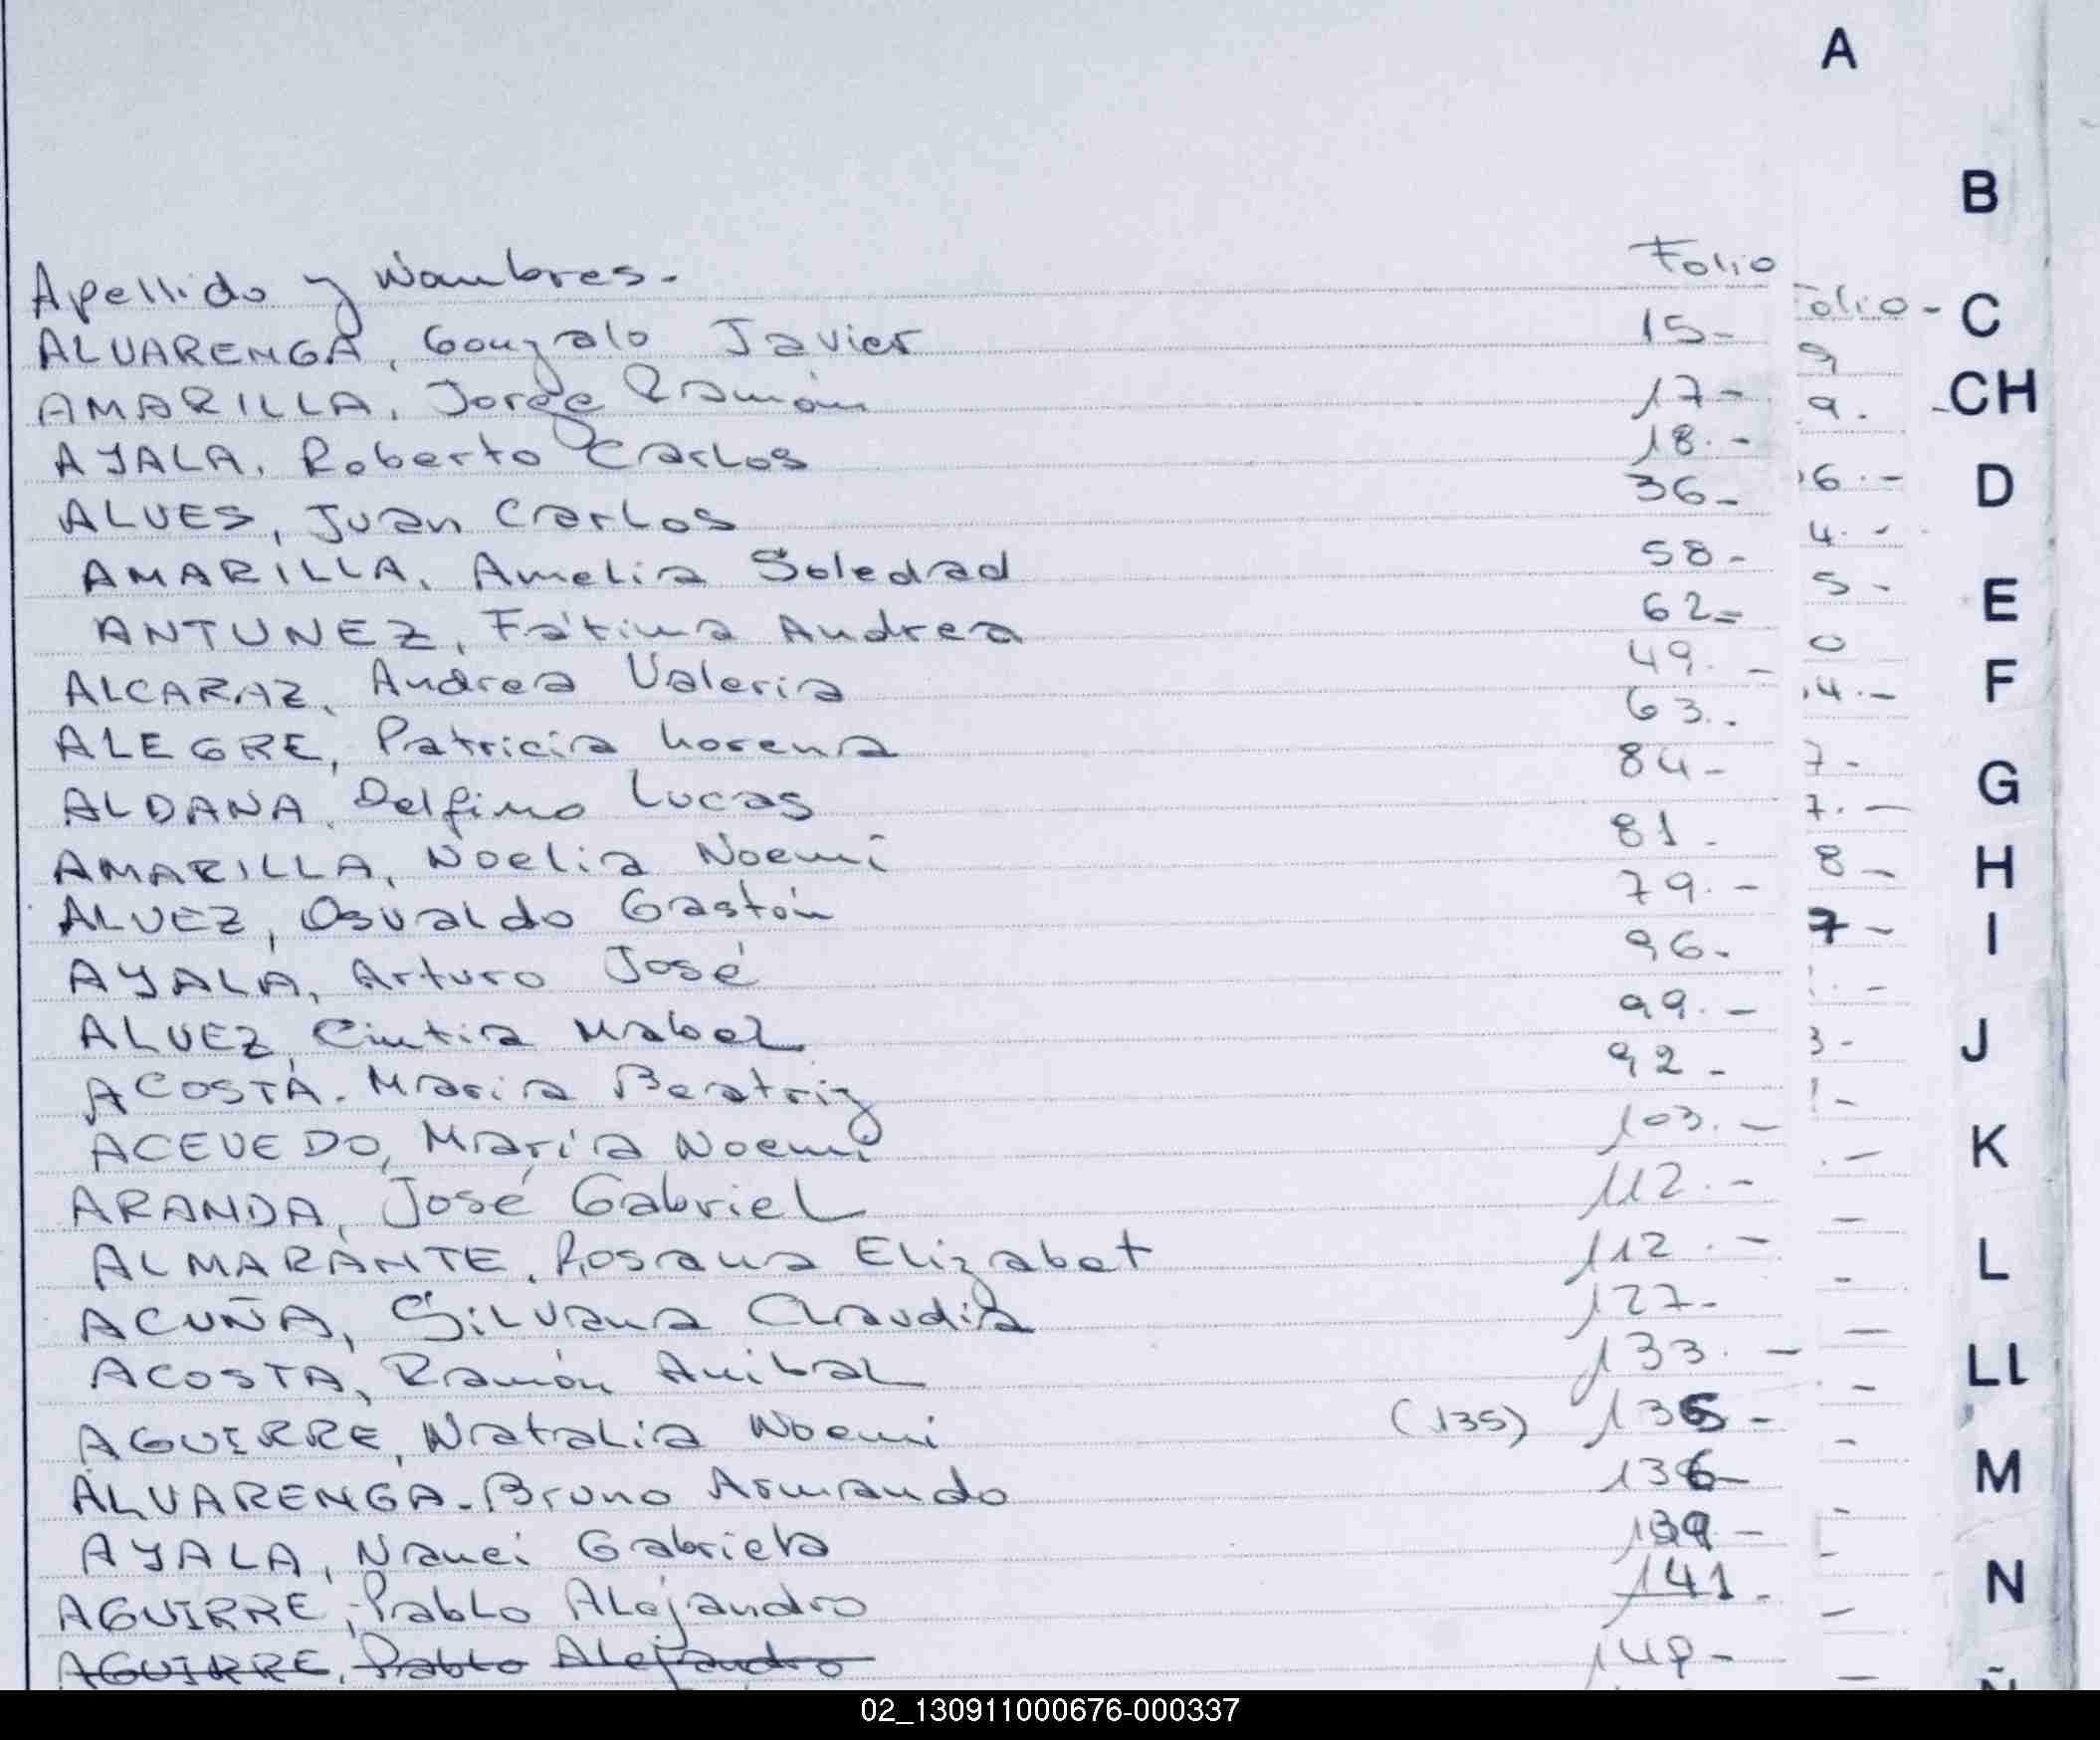 A
B
C
CH
D
E
F
G
H
I
J
K
L
Ll
M
N
Apellido y Nombres. Folio
ALVARENGA, Gonzalo Javier 15-
AMARILLA, Jorge Ramón 17-
AYALA, Roberto Carlos 18.-
ALVES, Juan Carlos 36-
AMARILLA, Amelia Soledad 58-
ANTUNEZ, Fátima Andrea 62=
ALCARAZ, Andrea Valeria 49.-
ALEGRE, Patricia Lorena 63.-
ALDANA, Delfino Lucas 84-
AMARILLA, Noelia Noemí 81-
ALVEZ, Osvaldo Gastón 79.-
AYALA, Arturo José 96-
ALVEZ, Cintia Mabel 99.-
ACOSTA. Maria Beatriz 92-
ACEVEDO, María Noemi 103.-
ARANDA, José Gabriel 112.-
ALMARANTE, Rosana Elizabet 112.-
ACUÑA, Silvana Claudia 127-
ACOSTA, Ramón Anibal 133.-
AGUIRRE, Natalia Noemi (135) 135-
ALVARENGA- Bruno Armando 136-
AYALA, Nanci Gabriela 139.-
AGUIRRE, Pablo Alejandro 141-
AGUIRRE, Pablo Alejandro
olio-
9
9.
6.-
4.-
5-
0
4.-
7-
7.-
8-
7-
3-
02_130911000676-000337